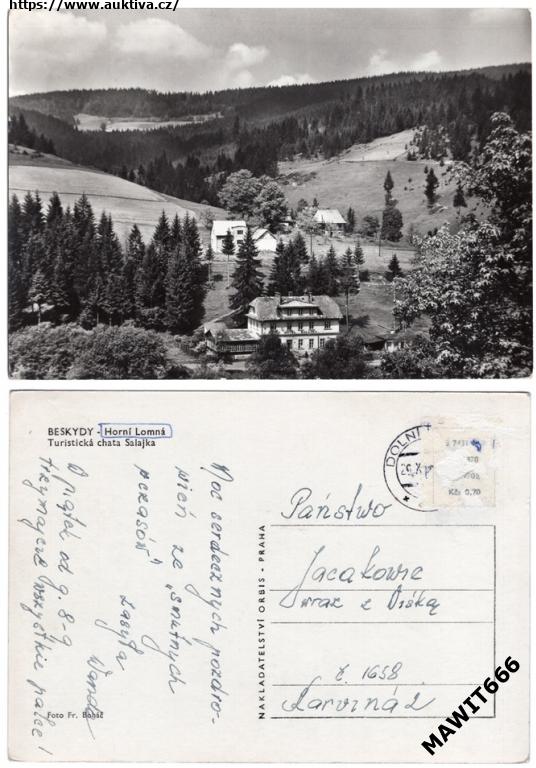 https://www.auktiva.cz/
BESKYDY - Horní Lomná
Turistická chata Salajka
Moc serdecznych pozdro-
wień ze „smutnych
pczasów"
zasyła
Wanda
O piątej od 9. 8-9
trzymajcie wszystkie palce!
Foto Fr. Boháč
NAKLADATELSTVÍ ORBIS - PRAHA
DOLNÍ
29. X
Kčs 0,70
Państwo
Jacakowie
wraz z Piśką
č. 1658
Karviná 2
MAWIT666